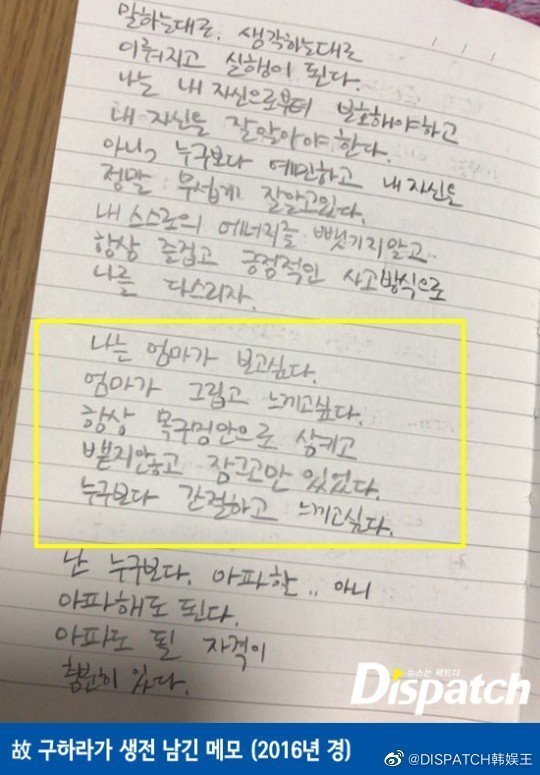 말하는대로, 생각하는대로
이뤄지고 실행이 된다.
나는 내 자신으로부터 보호해야하고
내 자신을 잘알아야 한다.
아니 누구보다 예민하고 내 자신을
정말 무섭게 잘알고있다.
내 스스로의 에너지를 뺏기지말고
항상 즐겁고 긍정적인 사고방식으로
나를 다스리자.
나는 엄마가 보고싶다.
엄마가 그립고 느끼고싶다.
항상 목구멍안으로 삼키고
뱉지안고 잠그고만 있었다.
누구보다 간절하고 느끼고싶다.
난 누구보다. 아파할.. 아니
아파해도 된다.
아파도 될 자격이
충분히 있다.
뉴스는 팩트다
Dispatch
故 구하라가 생전 남긴 메모 (2016년 경)
@DISPATCH韩娱王